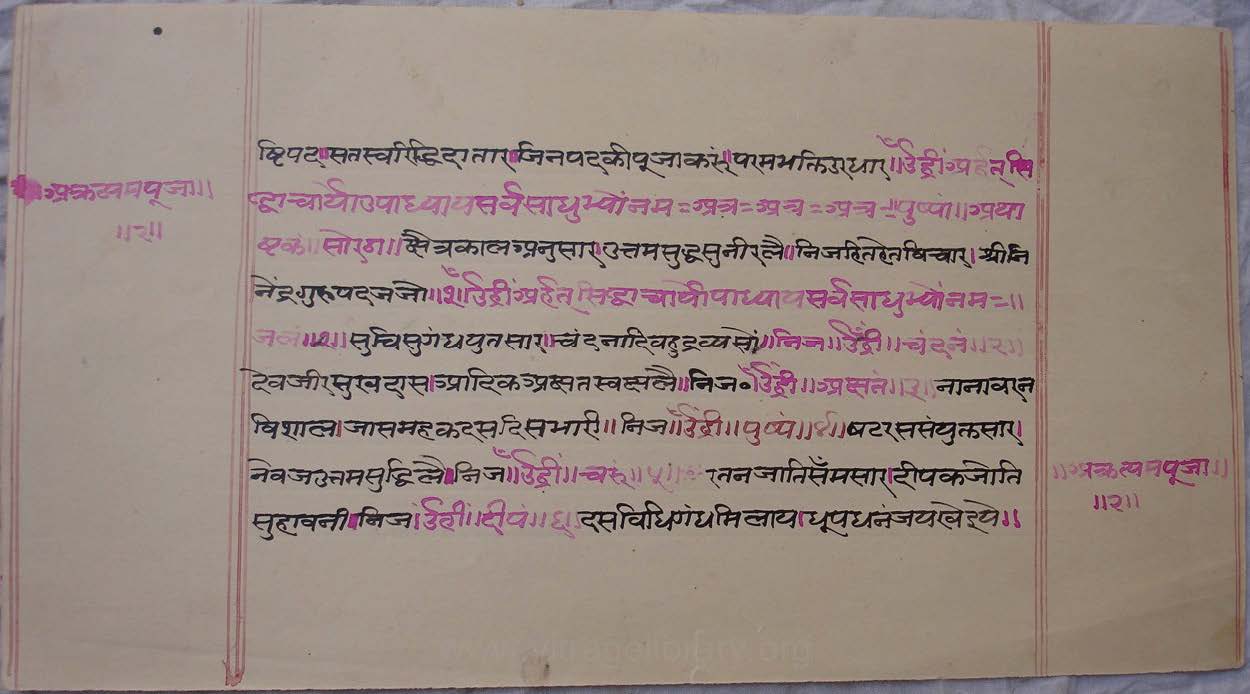 अकत्यमपूजा॥
॥२॥
ष्टिपद॥सतस्वरिद्धिदातार॥जिनपदकीपूजाकरूं॥परमभक्तिउरधार॥ॐह्रींअर्हत्सि
द्धाचार्योउपाध्यायसर्वसाधुभ्योंनमः=अत्र=अत्र=अत्र=पुष्पं॥अथा
ष्टकं॥सोरठा॥क्षेत्रकालअनुसार।उत्तमसुद्धसुनीरलै॥निजहितहेतविचार।श्रीजि
नेंद्रगुरुपदजजो॥१॥ॐह्रींअर्हत्सिद्धाचार्योपाध्यायसर्वसाधुभ्योंनमः=॥
जलं॥१॥सुचिसुगंधयुतसार।चंदनादिबहुद्रव्यसों॥निज॥ॐह्रीं॥चंदनं॥२॥
देवजीरसुखदास।आदिकअक्षतस्वक्षलै॥निज॰ॐह्रीं॥अक्षतं॥३॥नानावरन
विशाल।जासमहकदसदिसभारी॥निज॥ॐह्रीं॥पुष्पं॥४॥षटरससंयुक्तसार।
नेवजउत्तमसुद्धिलै।निज॥ॐह्रीं॥चरुं॥५॥रतनजातिसँमसार।दीपकजोति
सुहावनी।निज॥ॐह्रीं॥दीपं॥६॥दसविधिगंधमिलाय।धूपधनंजयखेइये॥
॥अकत्यमपूजा॥
॥२॥